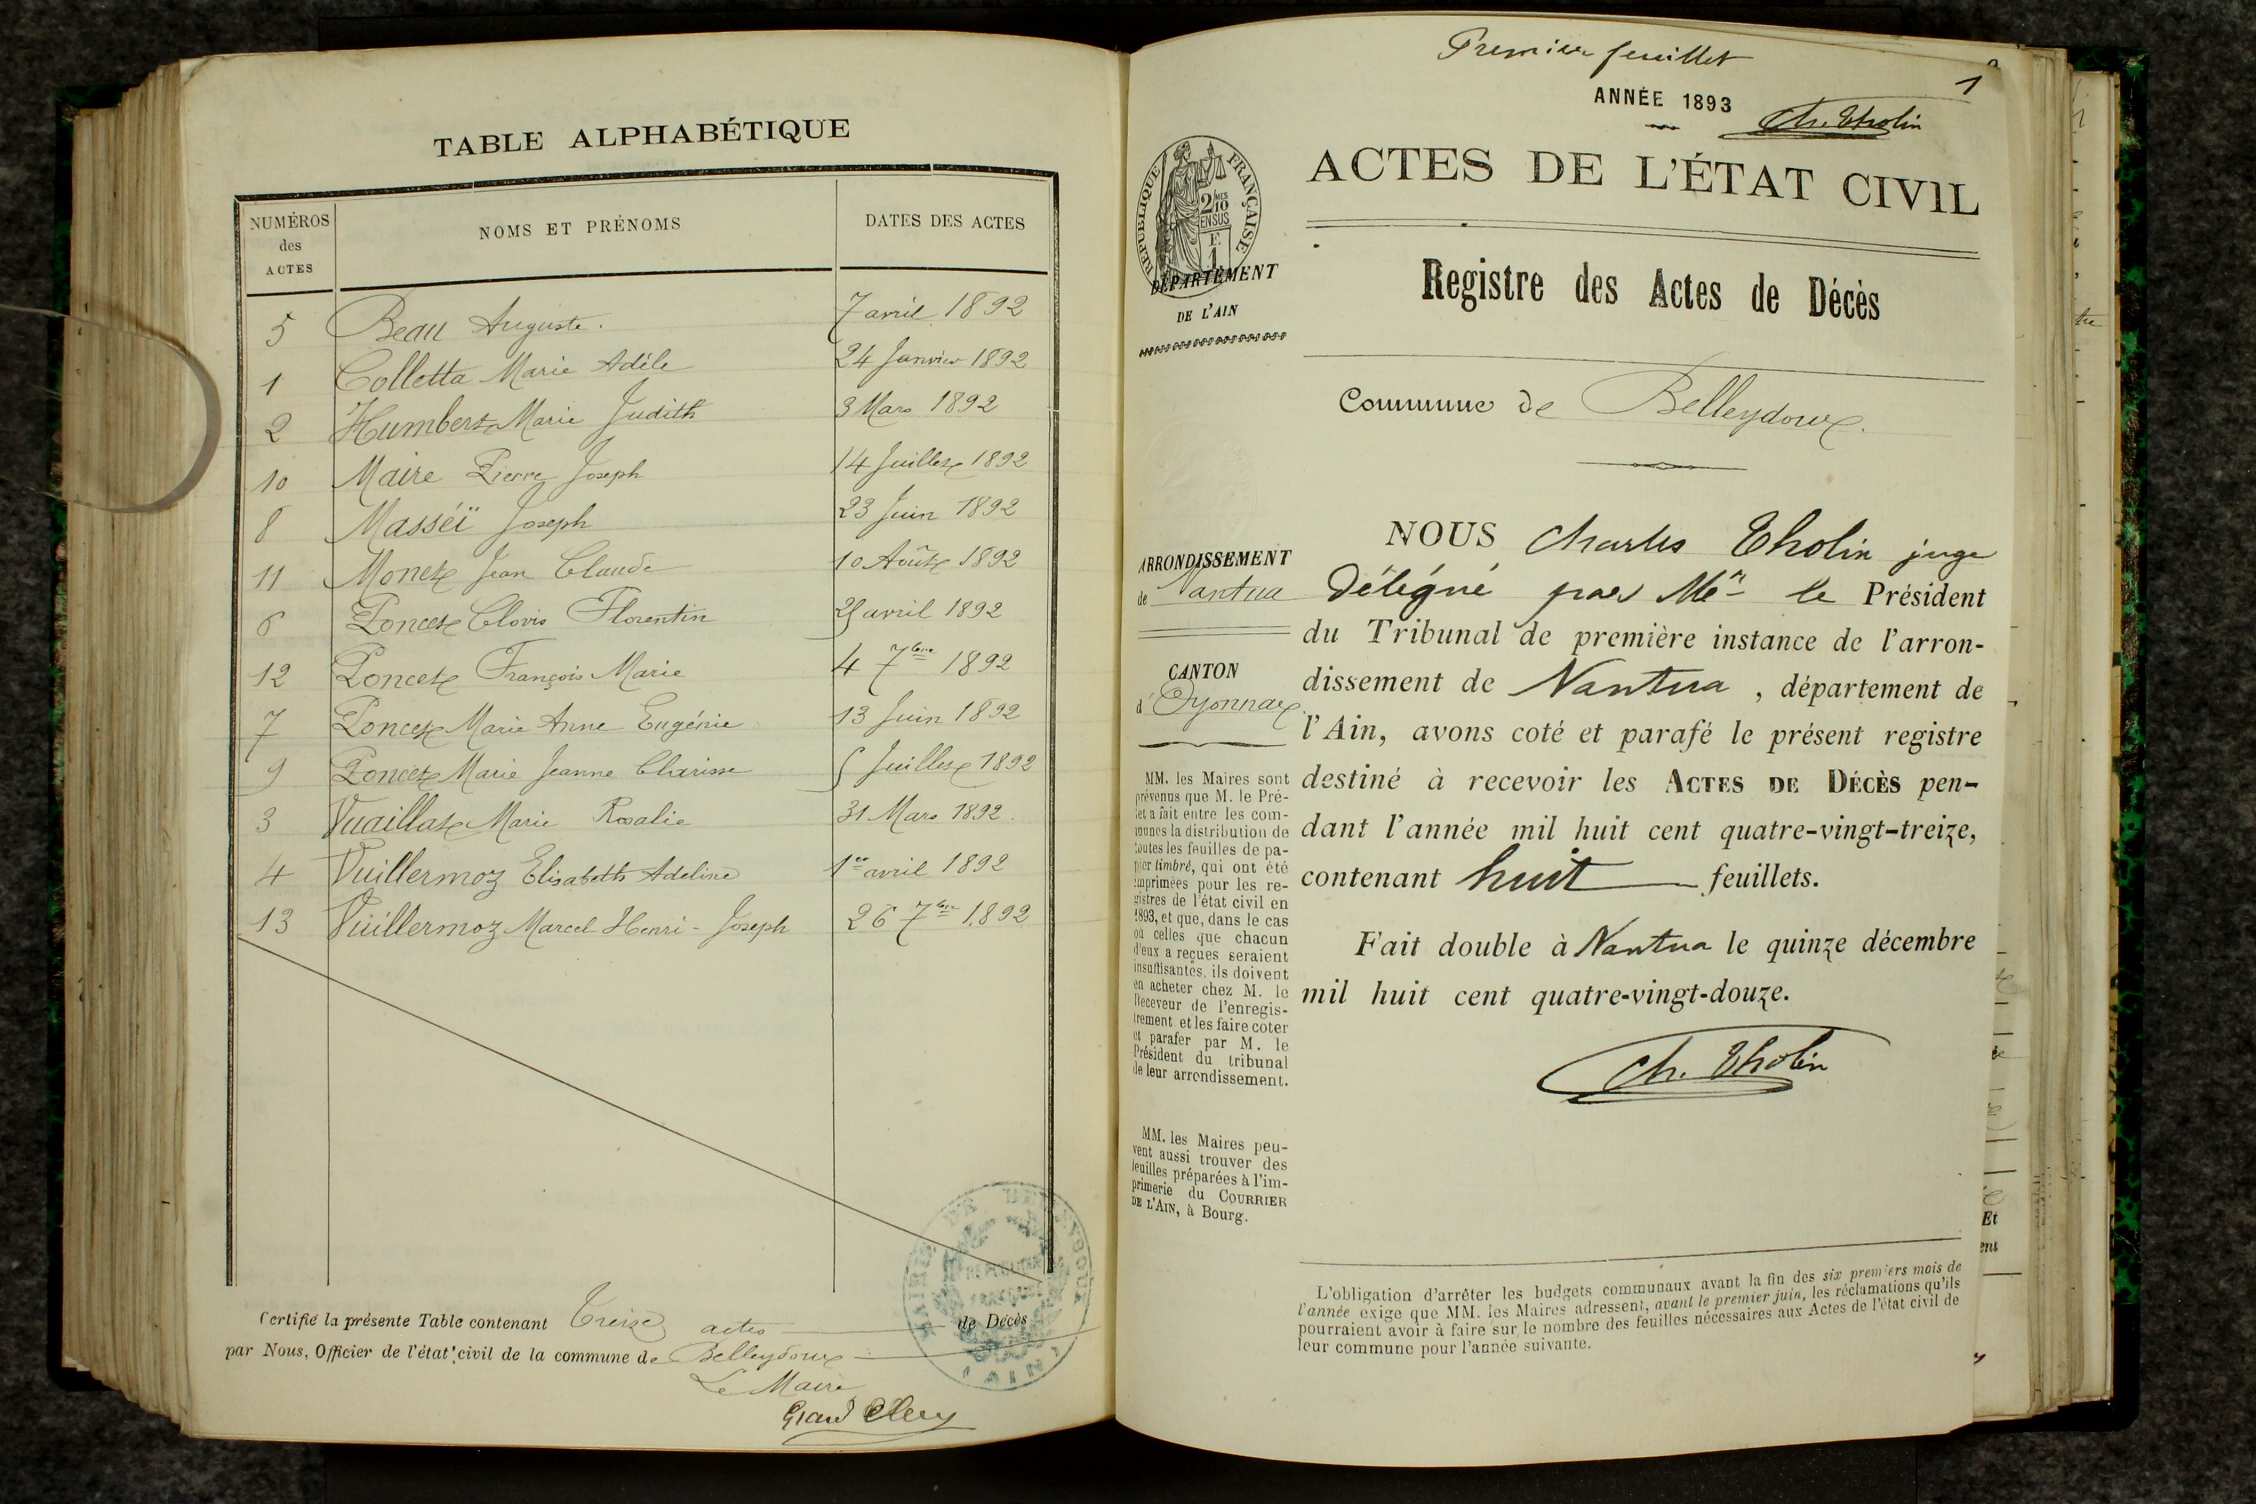 TABLE ALPHABÉTIQUE
NUMÉROS des ACTES NOMS ET PRÉNOMS DATES DES ACTES
5 Beau Auguste. 7 avril 1892
1 Colletta Marie Adèle 24 Janvier 1892
2 Humbert Marie Judith 3 Mars 1892
10 Maire Pierre Joseph 14 Juillet 1892
8 Masséï Joseph 23 Juin 1892
11 Monet Jean Claude 10 Août 1892
6 Poncet Clovis Florentin 25 avril 1892
12 Poncet François Marie 4 7bre 1892
7 Poncet Marie Anne Eugénie 13 Juin 1892
9 Poncet Marie Jeanne Clarisse 5 Juillet 1892
3 Vuaillat Marie Rosalie 31 Mars 1892.
4 Vuillermoz Elisabeth Adeline 1er avril 1892
13 Vuillermoz Marcel Henri-Joseph 26 7bre 1892
Certifié la présente Table contenant Treize actes de Décès
par Nous, Officier de l'état civil de la commune de Belleydoux
Le Maire
Grand Clery
MAIRIE DE BELLEYDOUX
RÉPUBLIQUE
FRANÇAISE
(AIN)
Premier feuillet
1
ANNÉE 1893
Ch. Tholin
ACTES DE L'ÉTAT CIVIL
RÉPUBLIQUE FRANÇAISE
2 MES 10
EN SUS
E
1
DÉPARTEMENT
DE L'AIN
Registre des Actes de Décès
Commune de Belleydoux.
ARRONDISSEMENT
de Nantua
CANTON
d'Oyonnax
MM. les Maires sont
prévenus que M. le Pré-
fet a fait entre les com-
munes la distribution de
toutes les feuilles de pa-
pier timbré, qui ont été
imprimées pour les re-
gistres de l'état civil en
1893, et que, dans le cas
où celles que chacun
d'eux a reçues seraient
insuffisantes, ils doivent
en acheter chez M. le
Receveur de l'enregis-
trement et les faire coter
et parafer par M. le
Président du tribunal
de leur arrondissement.
MM. les Maires peu-
vent aussi trouver des
feuilles préparées à l'im-
primerie du COURRIER
DE L'AIN, à Bourg.
NOUS Charles Tholin juge
délégué par Mr le Président
du Tribunal de première instance de l'arron-
dissement de Nantua, département de
l'Ain, avons coté et parafé le présent registre
destiné à recevoir les ACTES DE DÉCÈS pen-
dant l'année mil huit cent quatre-vingt-treize,
contenant huit feuillets.
Fait double à Nantua le quinze décembre
mil huit cent quatre-vingt-douze.
Ch. Tholin
L'obligation d'arrêter les budgets communaux avant la fin des six premiers mois de
l'année exige que MM. les Maires adressent, avant le premier juin, les réclamations qu'ils
pourraient avoir à faire sur le nombre des feuilles nécessaires aux Actes de l'état civil de
leur commune pour l'année suivante.
Et